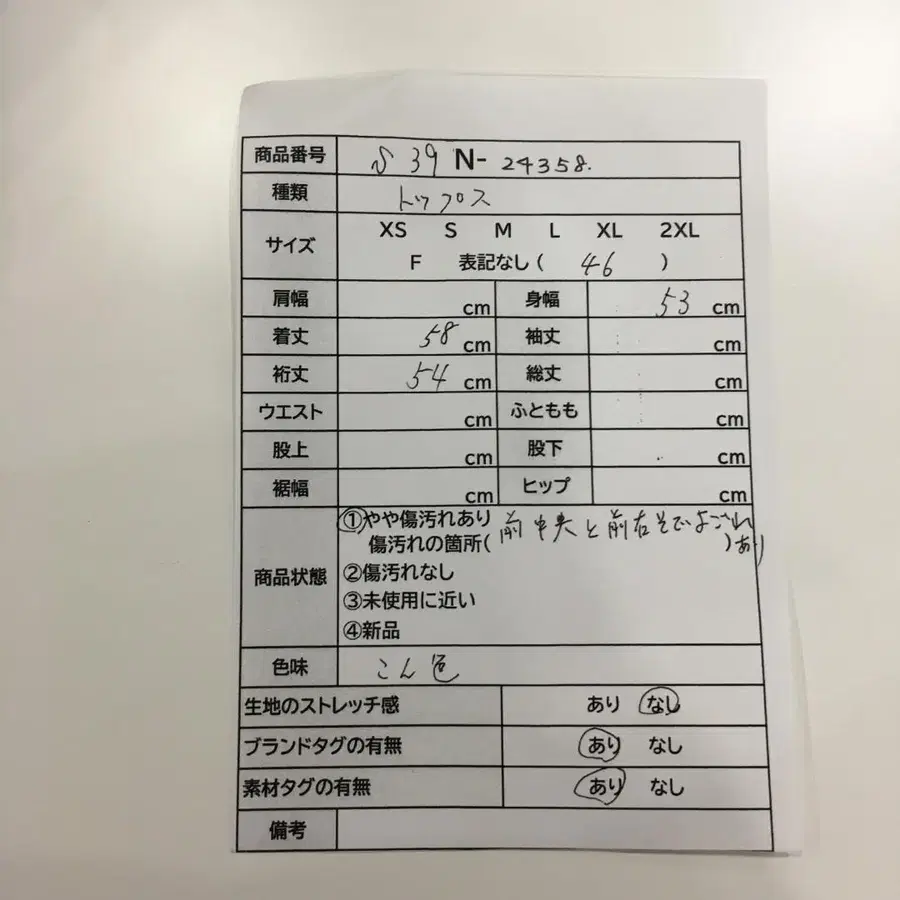 商品番号 S 39 N- 24358.
種類 トップス
サイズ XS S M L XL 2XL
F 表記なし ( 46 )
肩幅 cm 身幅 53 cm
着丈 58 cm 袖丈 cm
裄丈 54 cm 総丈 cm
ウエスト cm ふともも cm
股上 cm 股下 cm
裾幅 cm ヒップ cm
商品状態 ①やや傷汚れあり
傷汚れの箇所( 前中央と前右そでよごれあり )
②傷汚れなし
③未使用に近い
④新品
色味 こん色
生地のストレッチ感 あり なし
ブランドタグの有無 あり なし
素材タグの有無 あり なし
備考